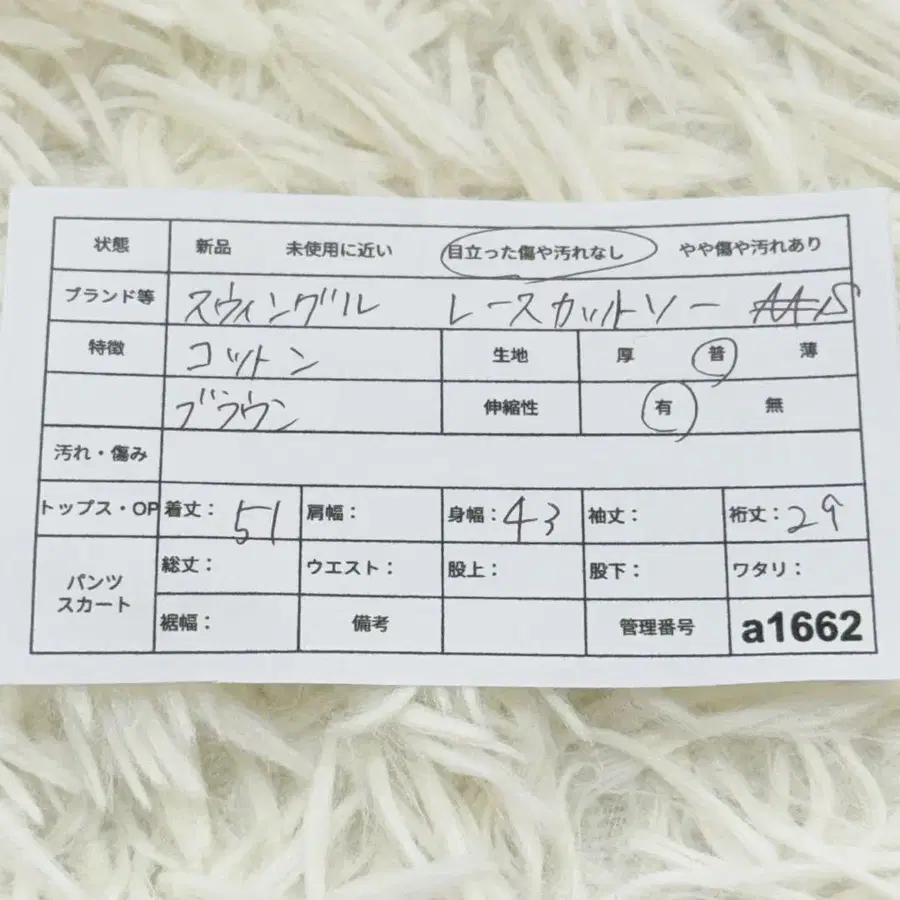 状態 新品 未使用に近い 目立った傷や汚れなし やや傷や汚れあり
ブランド等 スウィングル レースカットソー S
特徴 コットン 生地 厚 普 薄
ブラウン 伸縮性 有 無
汚れ・傷み
トップス・OP 着丈: 51 肩幅: 身幅: 43 袖丈: 裄丈: 29
パンツ 総丈: ウエスト: 股上: 股下: ワタリ:
スカート 裾幅: 備考 管理番号 a1662